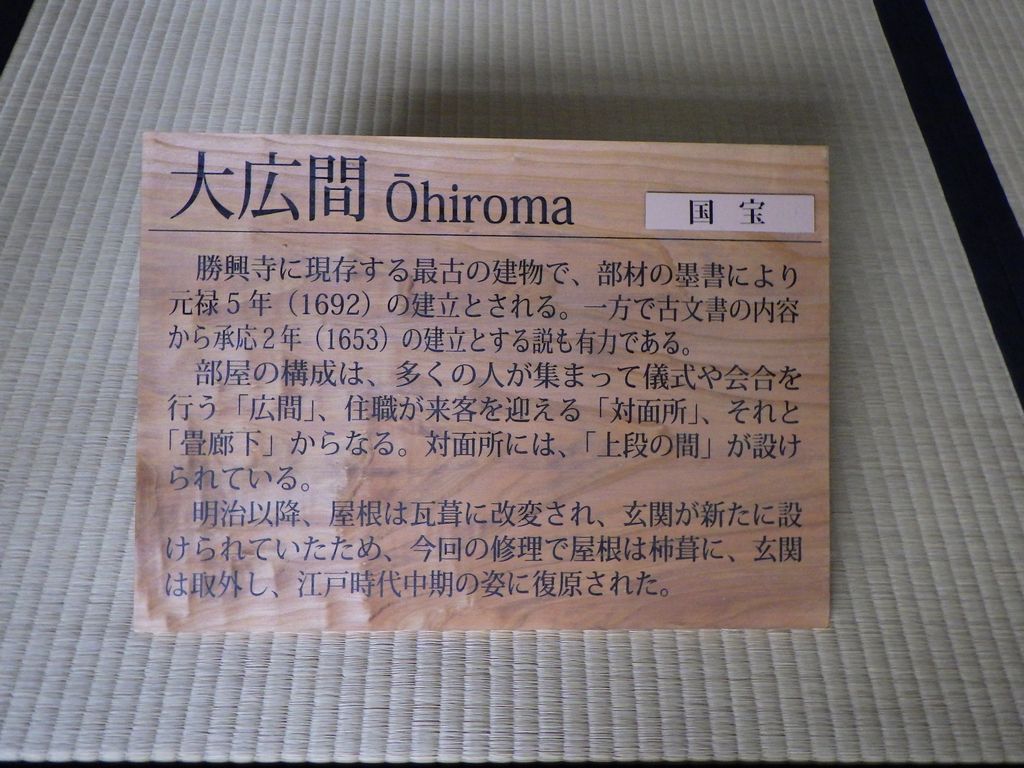 大広間 Ōhiroma
国宝
勝興寺に現存する最古の建物で、部材の墨書により
元禄5年（1692）の建立とされる。一方で古文書の内容
から承応2年（1653）の建立とする説も有力である。
部屋の構成は、多くの人が集まって儀式や会合を
行う「広間」、住職が来客を迎える「対面所」、それと
「畳廊下」からなる。対面所には、「上段の間」が設け
られている。
明治以降、屋根は瓦葺に改変され、玄関が新たに設
けられていたため、今回の修理で屋根は杮葺に、玄関
は取外し、江戸時代中期の姿に復原された。